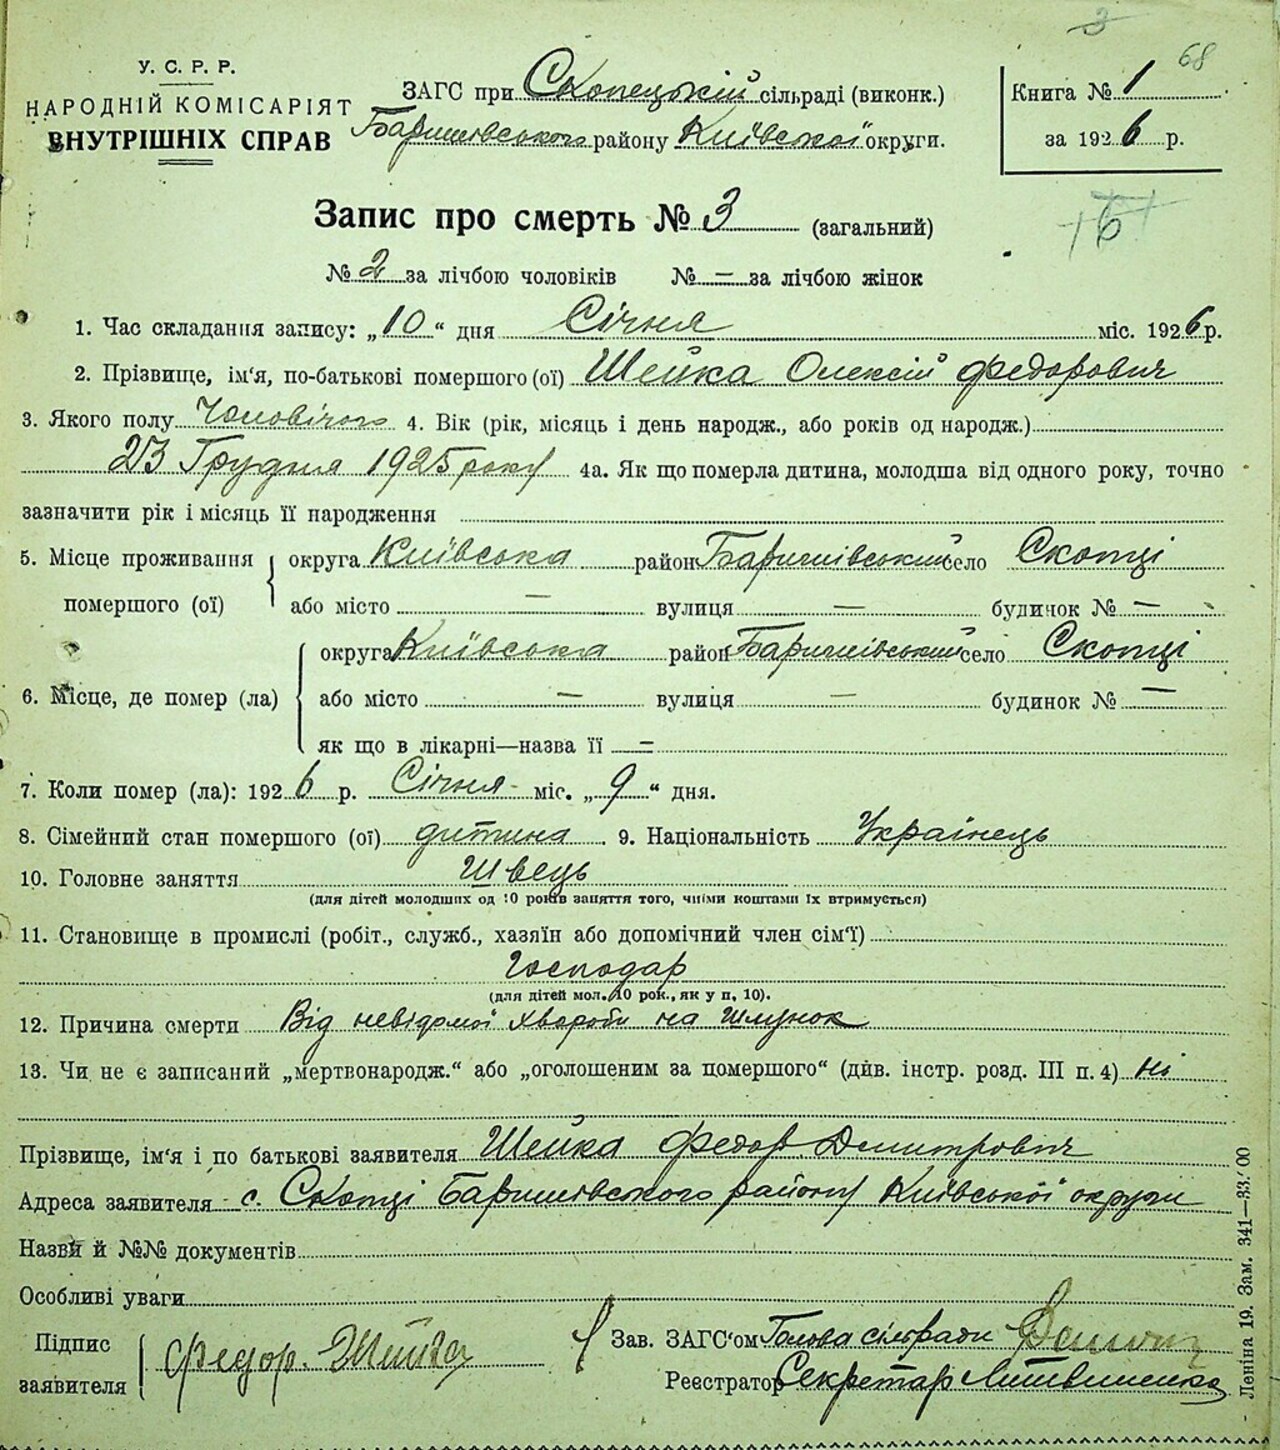 3
68
У. С. Р. Р.
НАРОДНІЙ КОМІСАРІЯТ
ВНУТРІШНІХ СПРАВ
ЗАГС при Скопецькій сільраді (виконк.)
Баришівського району Київської округи.
Книга № 1
за 1926 р.
Запис про смерть № 3 (загальний)
№ 2 за лічбою чоловіків № — за лічбою жінок
1. Час складання запису: „10“ дня Січня міс. 1926 р.
2. Прізвище, ім‘я, по-батькові помершого (ої) Шейка Олексій Федорович
3. Якого полу Чоловічого 4. Вік (рік, місяць і день народж., або років од народж.)
23 Грудня 1925 року 4а. Як що померла дитина, молодша від одного року, точно
зазначити рік і місяць її народження
5. Місце проживання помершого (ої) округа Київська район Баришівський село Скопці
або місто — вулиця — будинок № —
6. Місце, де помер (ла) округа Київська район Баришівський село Скопці
або місто — вулиця — будинок № —
як що в лікарні—назва її —
7. Коли помер (ла): 1926 р. Січня міс. „9“ дня.
8. Сімейний стан помершого (ої) дитина. 9. Національність Українець
10. Головне заняття Швець
(для дітей молодших од 10 років заняття того, чиїми коштами їх втримується)
11. Становище в промислі (робіт., служб., хазяїн або допомічний член сім‘ї)
Господар
(для дітей мол. 10 рок., як у п. 10).
12. Причина смерти Від невідомої хвороби на шлунок
13. Чи не є записаний „мертвонародж.“ або „оголошеним за помершого“ (див. інстр. розд. III п. 4) ні
Прізвище, ім‘я і по батькові заявителя Шейка Федор Дмитрович
Адреса заявителя с. Скопці Баришівського району Київської округи
Назви й №№ документів
Особливі уваги
Підпис заявителя Федор. Шейка
Зав. ЗАГС‘ом Голова сільради
Реєстратор Секретар Литвиненко
Леніна 19. Зам. 341—33.000